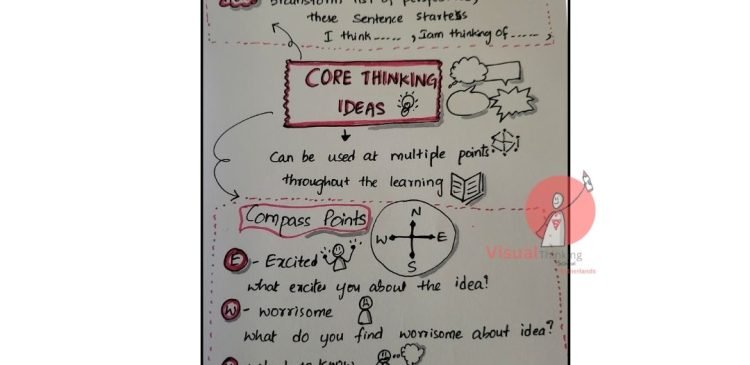 Brainstorm list of perspectives,
these Sentence Starters
I think ..... , Iam thinking of ..... ,
CORE THINKING
IDEAS
Can be used at multiple points
throughout the learning
Compass Points
N
W E
S
E - Excited
what excites you about the idea?
W - worrisome
what do you find worrisome about idea?
to know
VisualThinking
School
Netherlands